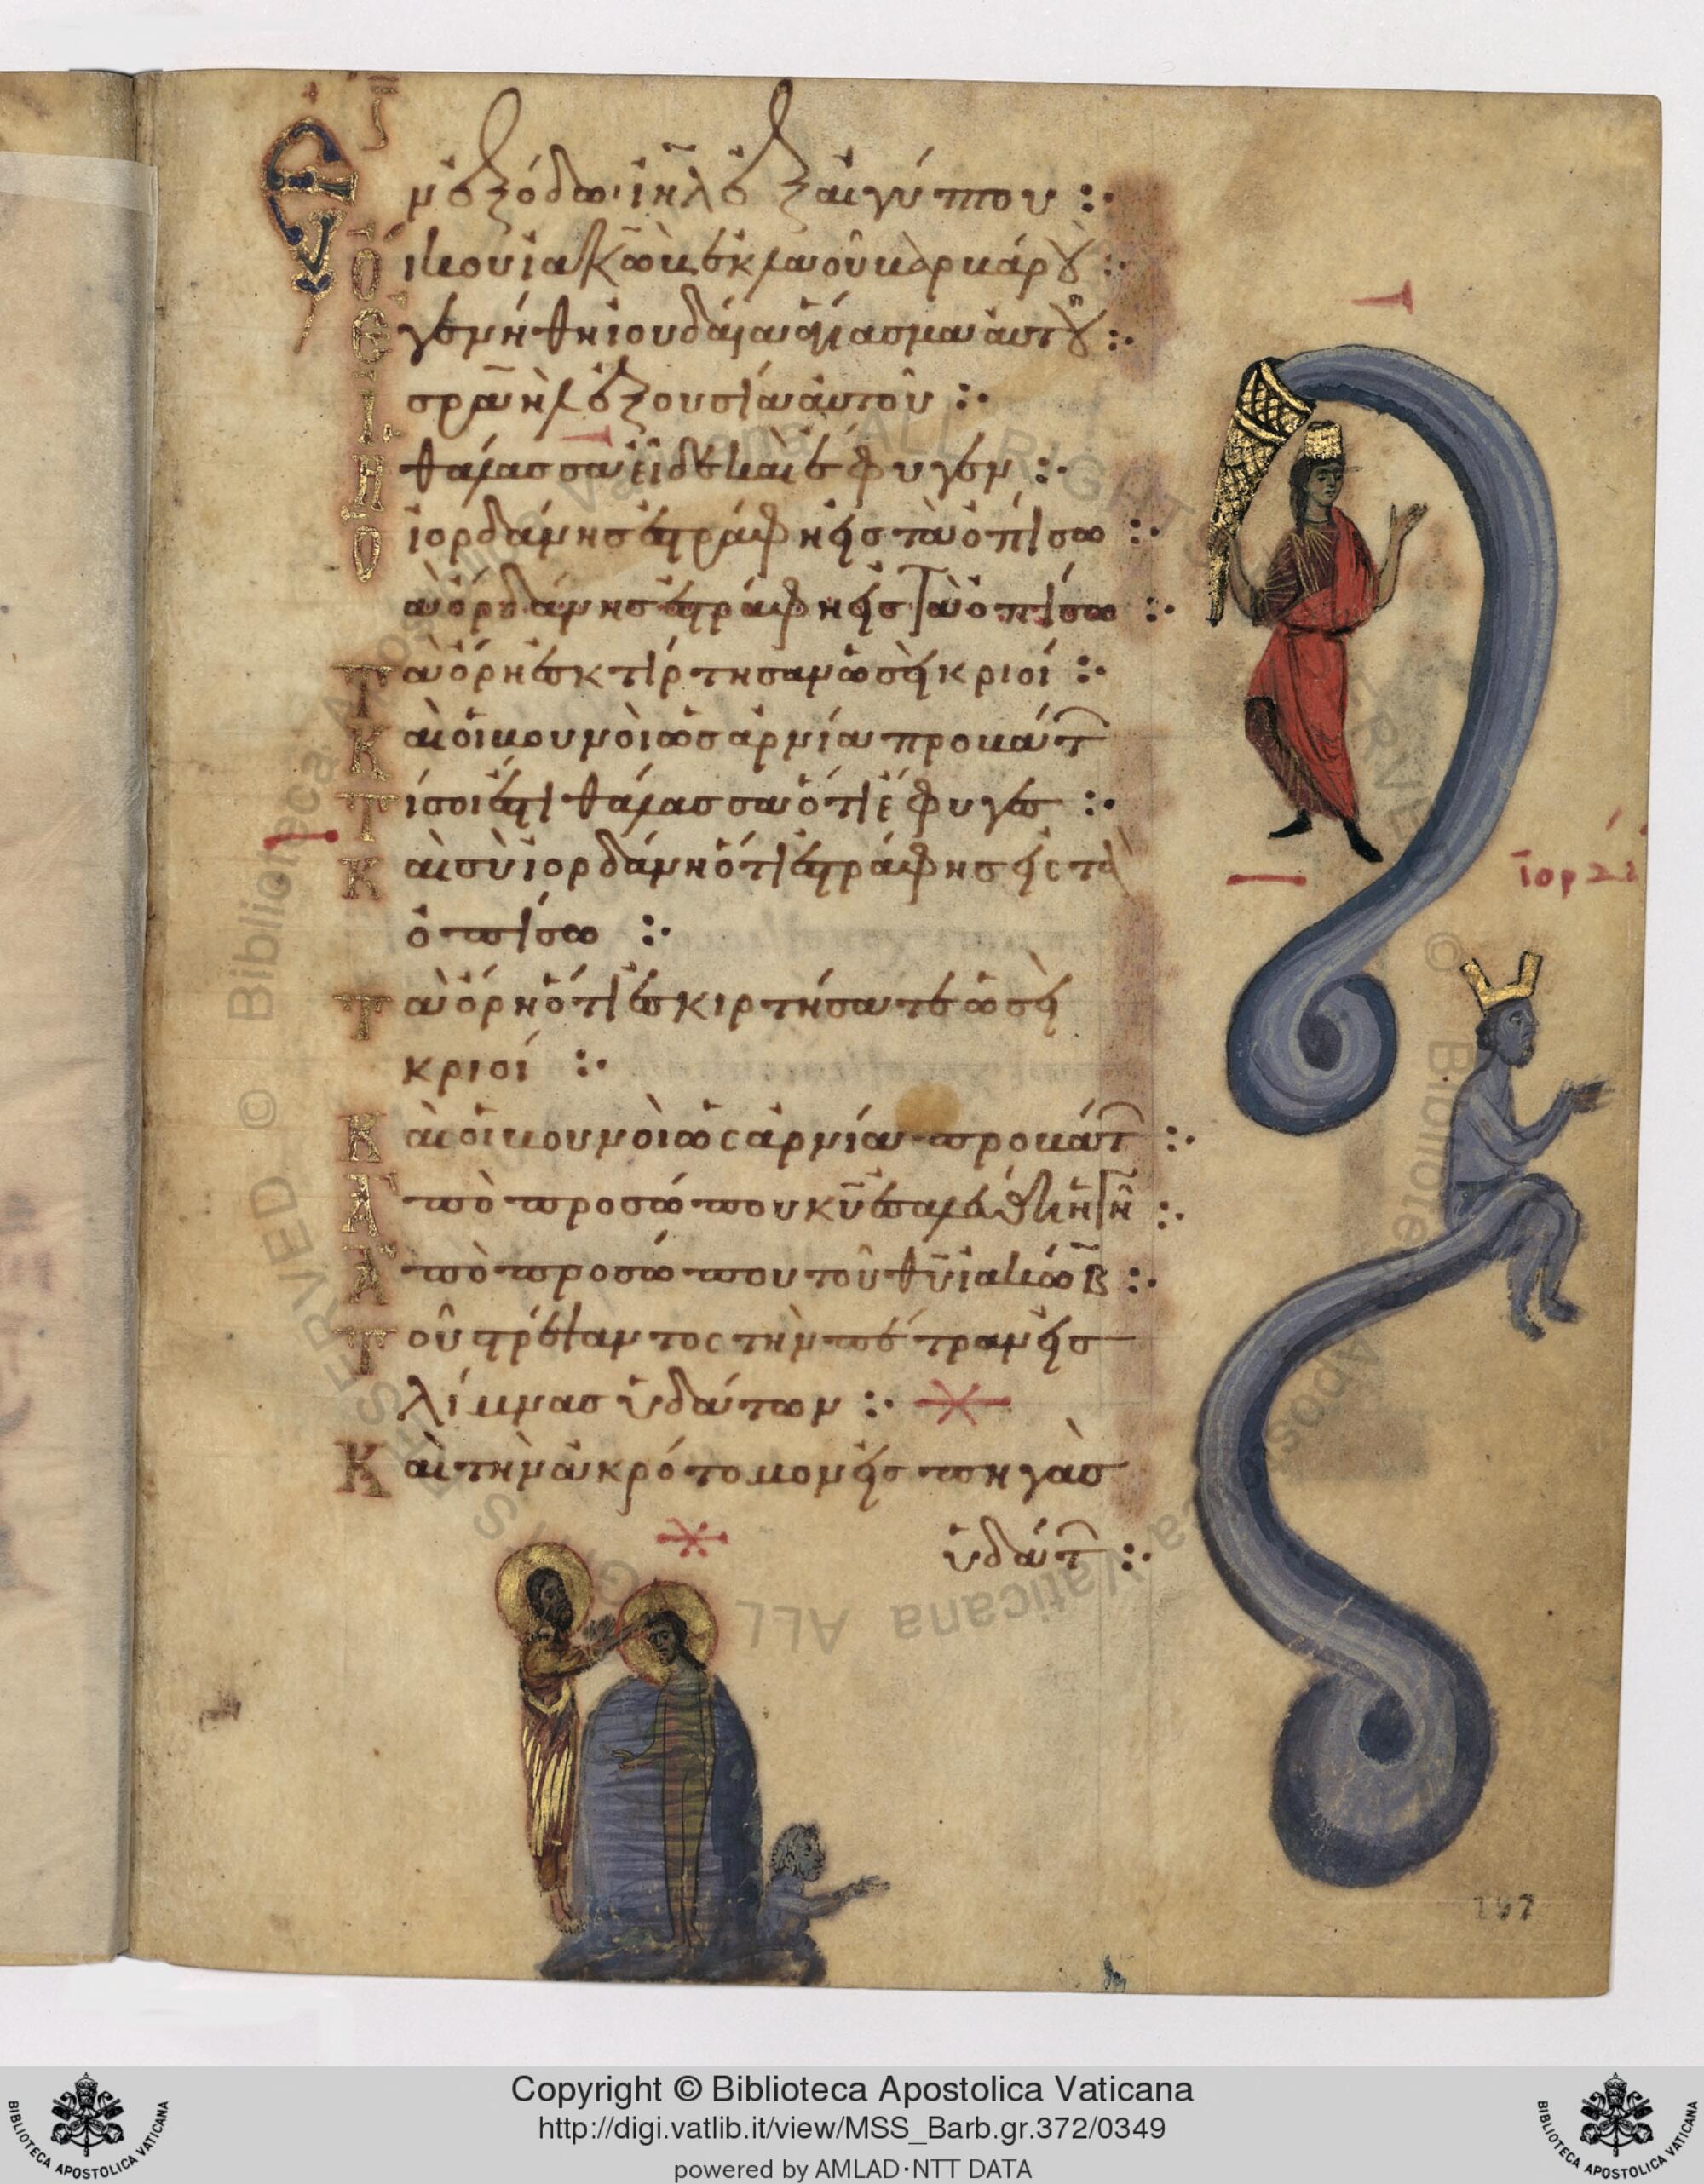 Ἐν ἐξόδω ἰηλ ἐξ αἰγύπτου :·
Οἴκου ιακὼβ ἐκ λαοῦ βαρβάρου :·
Ἐγενήθη ἰουδαία ἁγίασμα αὐτοῦ :·
Ἰσραὴλ ἐξουσία αὐτοῦ :·
Ἡ θάλασσα εἶδεν καὶ ἔφυγεν :·
Ὁ ἰορδάνης ἐστράφη εἰς τὰ ὀπίσω :·
Τὰ ὄρη ἐσκίρτησαν ὡσεὶ κριοί :·
Καὶ οἱ βουνοὶ ὡς ἀρνία προβάτ
Τί σοί ἐστι θάλασσα ὅτι ἔφυγες :·
Καὶ σὺ ἰορδάνη ὅτι ἐστράφης εἰς τὰ
ὀπίσω :·
Τὰ ὄρη ὅτι ἐσκιρτήσατε ὡσεὶ
κριοί :·
Καὶ οἱ βουνοὶ ὡς ἀρνία προβάτ :·
Ἀπὸ προσώπου κυ ἐσαλεύθη ἡ γῆ :·
Ἀπὸ προσώπου τοῦ θυ ἰακώβ :·
Τοῦ στρέψαντος τὴν πέτραν εἰς
λίμνας ὑδάτων :·
Καὶ τὴν ἀκρότομον εἰς πηγὰς
ὑδάτ :·
197
Copyright © Biblioteca Apostolica Vaticana
http://digi.vatlib.it/view/MSS_Barb.gr.372/0349
powered by AMLAD·NTT DATA
BIBLIOTECA APOSTOLICA VATICANA
BIBLIOTECA APOSTOLICA VATICANA